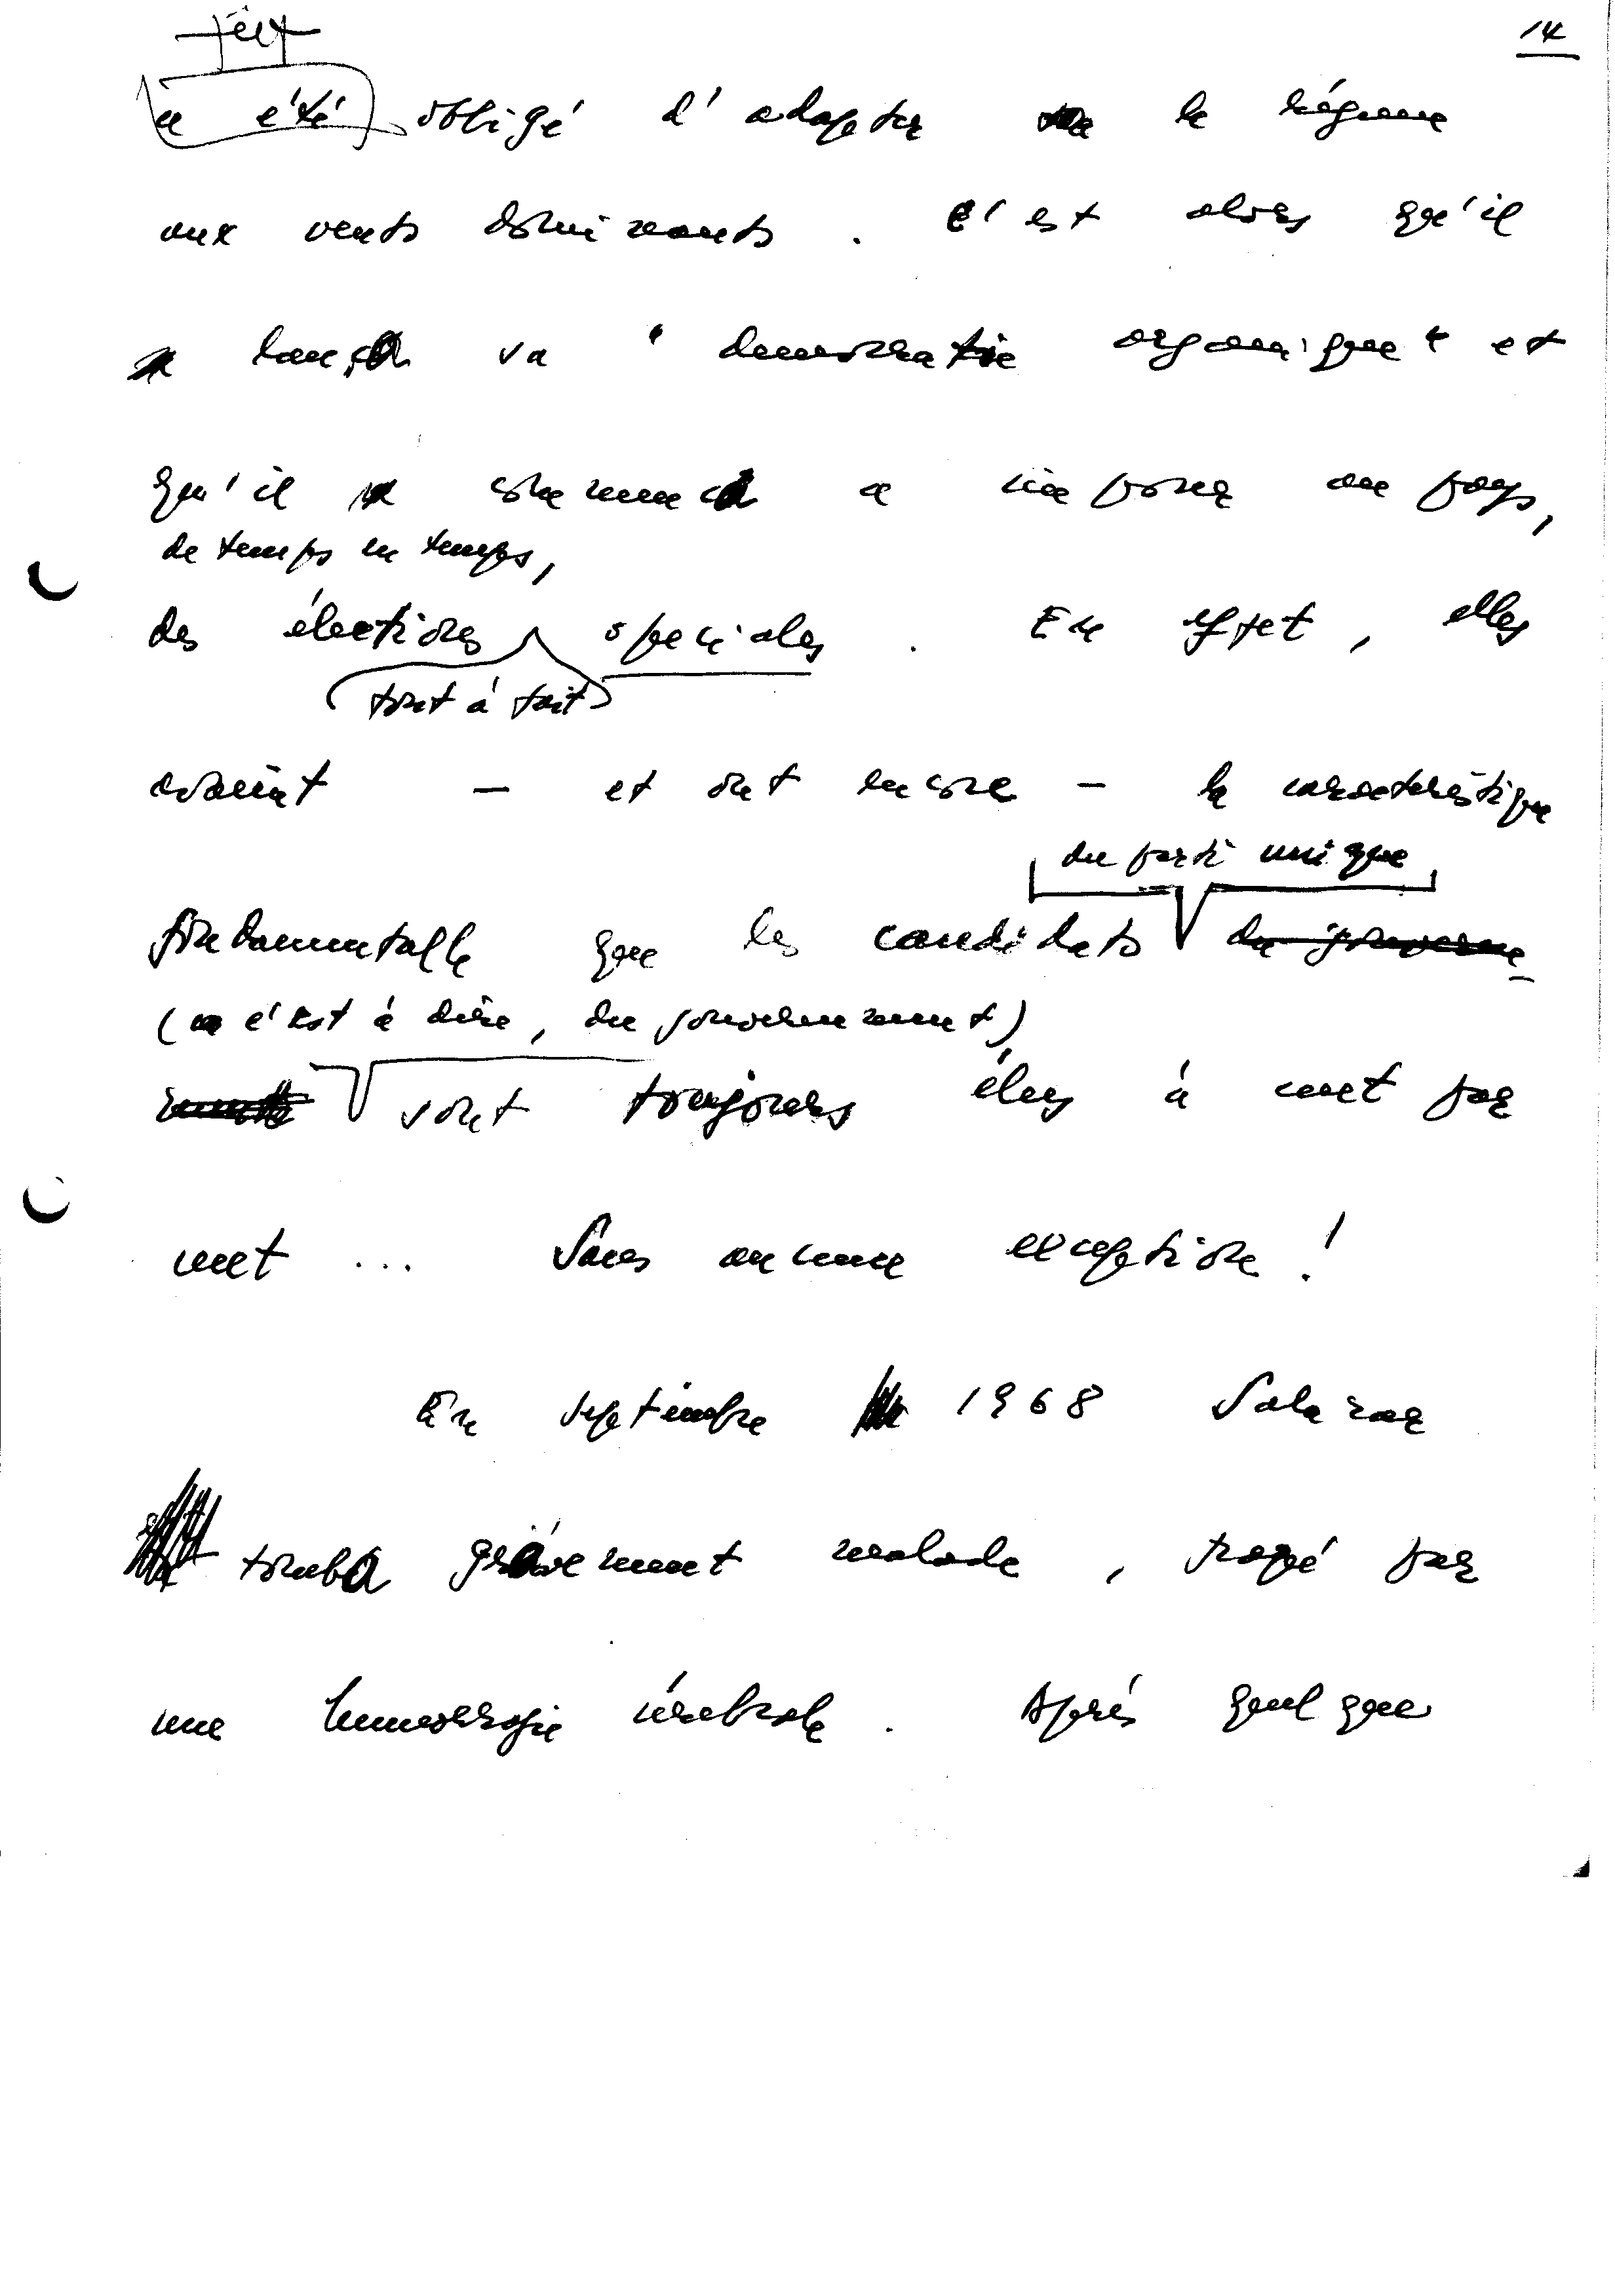 14
fut
a été obligé d'adapter le régime
aux vents dominants. C'est alors qu'il
lança sa "democratie organique" et
qu'il commença a imposer au pays,
de temps en temps,
des élections spéciales. En effet, elles
tout à fait
avaient — et ont encore — la caractéristique
du parti unique
fondamentalle que les candidats du gouverne-
(c'est à dire, du gouvernement)
sont toujours élus à cent par
cent ... Sans aucune exception!
En septembre 1968 Salazar
tomba gravement malade, frapé par
une hemorragie cérébrale. Après quelques